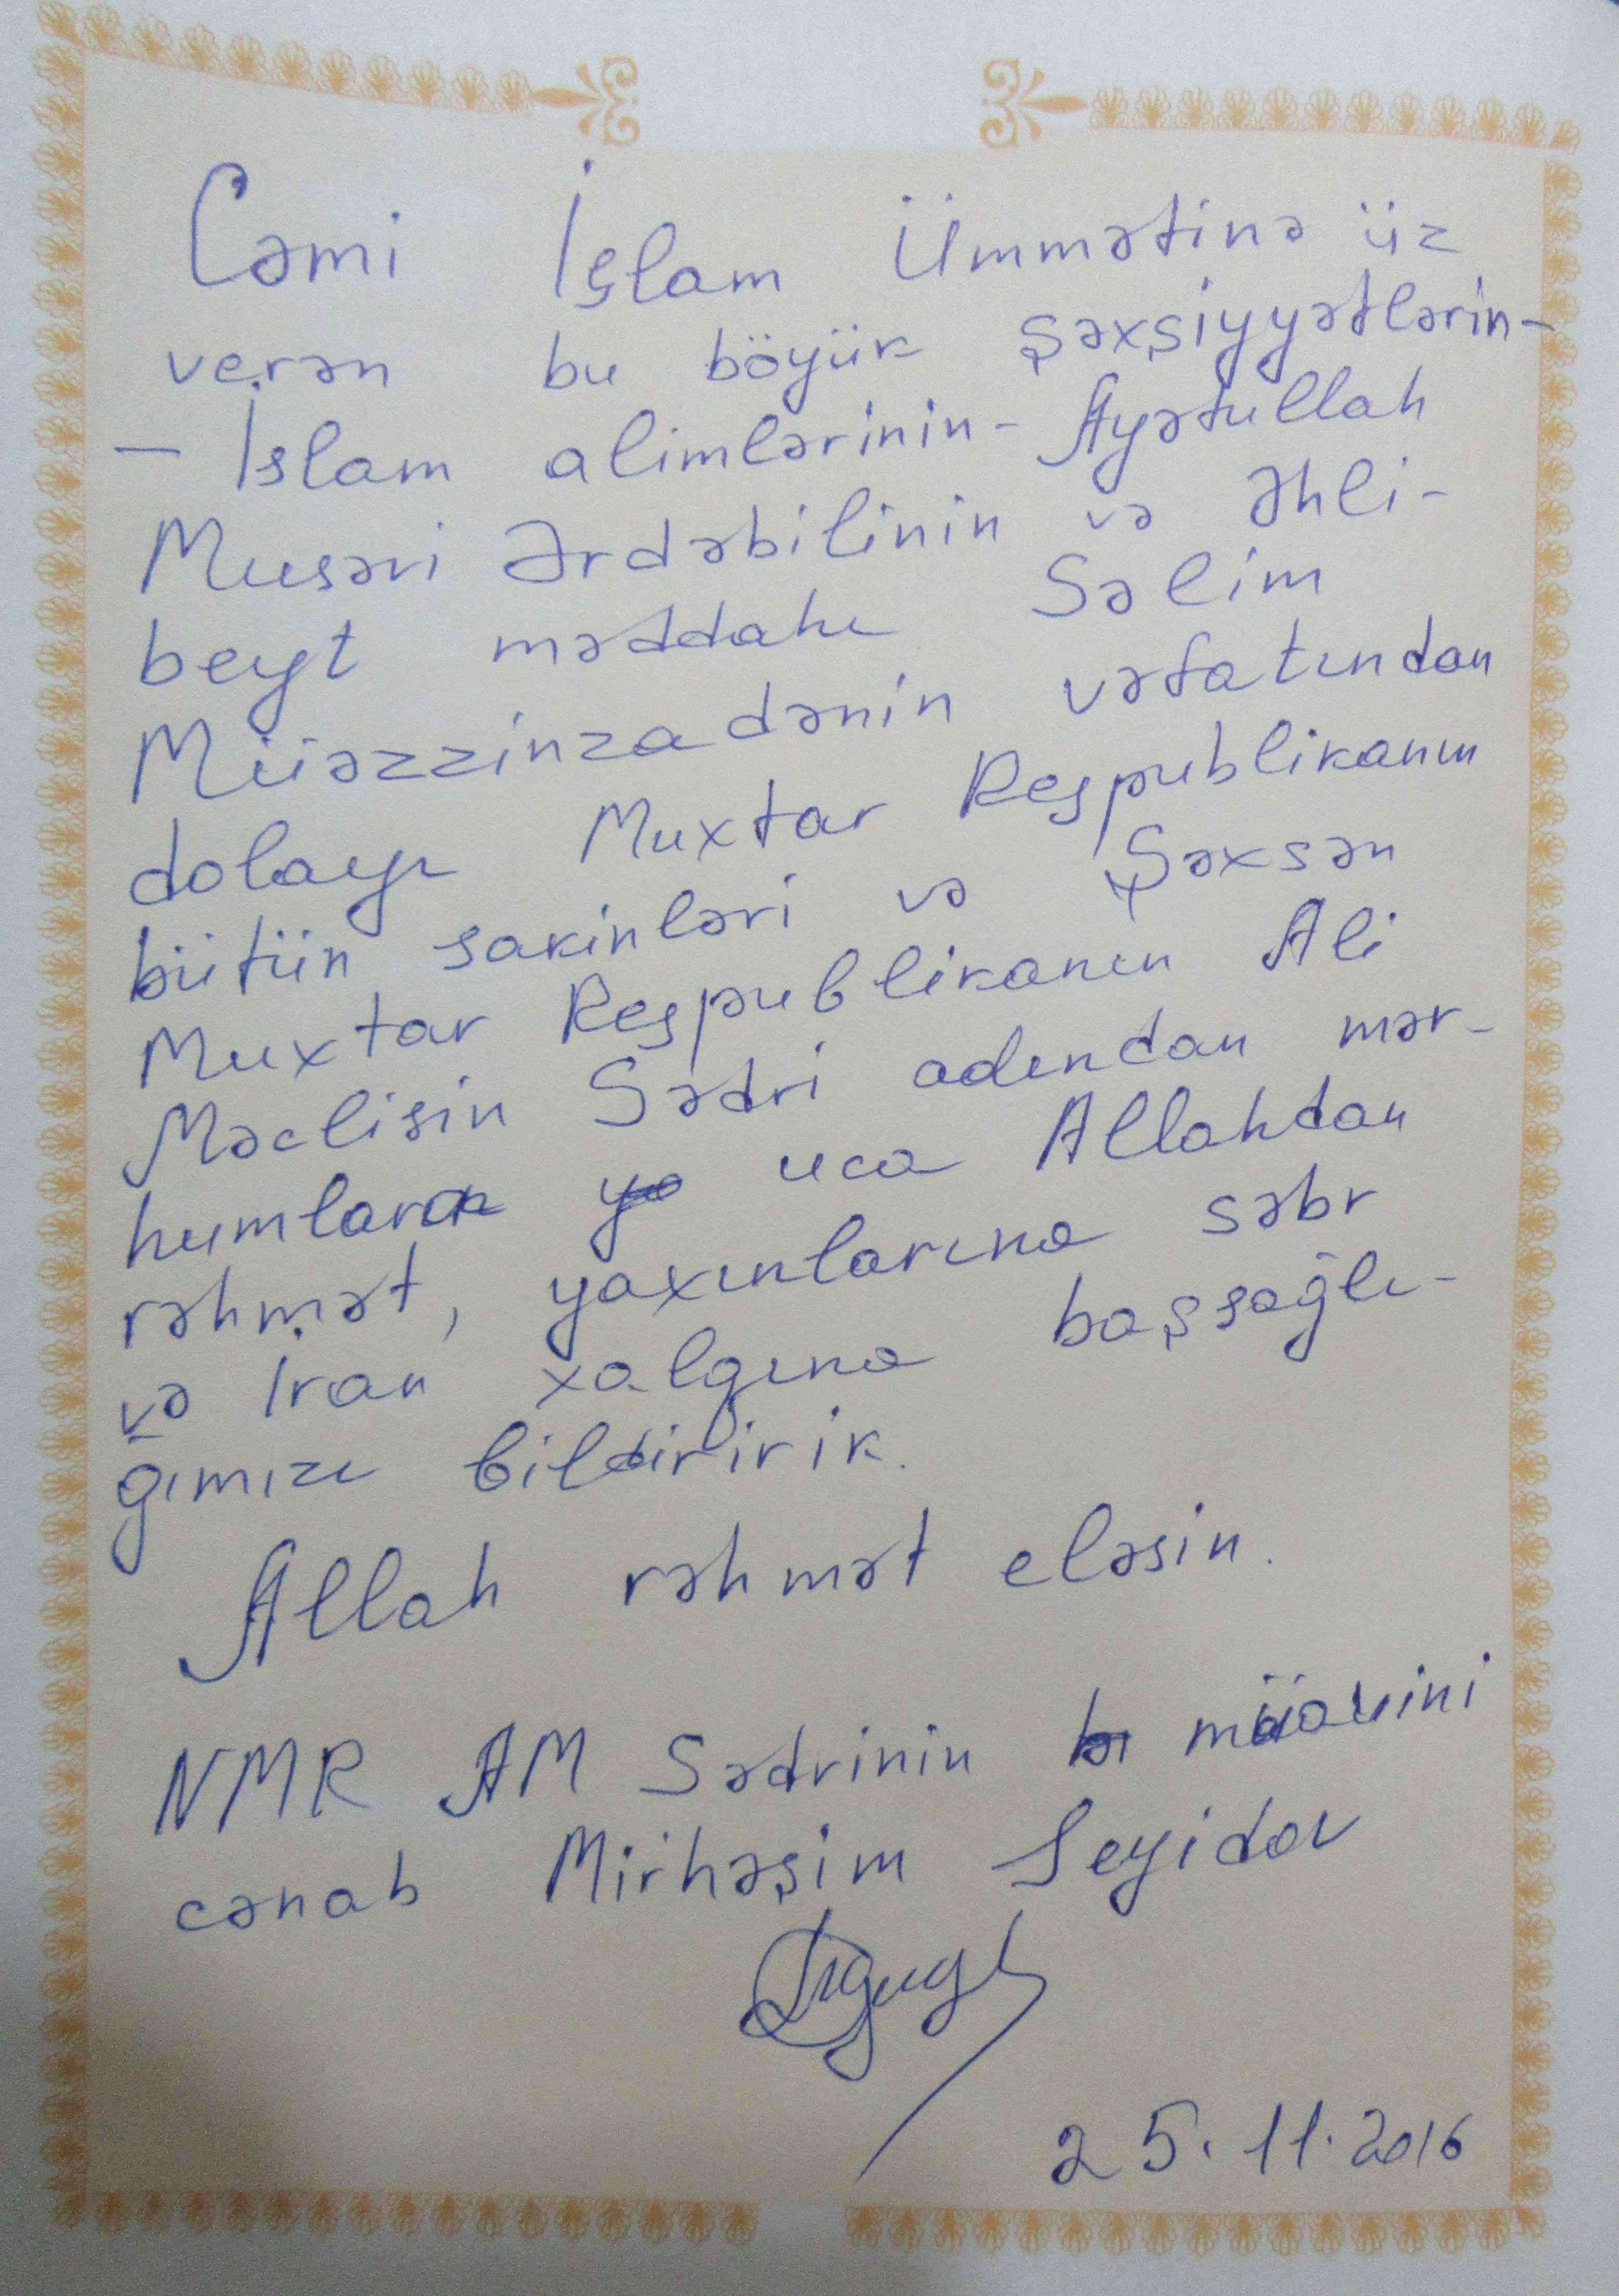 Cəmi İslam Ümmətinə üz
verən bu böyük şəxşiyyətlərin-
– İslam alimlərinin - Ayətullah
Musəvi Ərdəbilinin və Əhli-
beyt məddahı Səlim
Müəzzinzadənin vəfatından
dolayı Muxtar Respublikanın
bütün sakinləri və Şəxsən
Muxtar Respublikanın Ali
Məclisin Sədri adından mər-
humlara uca Allahdan
rəhmət, yaxınlarına səbr
və İran xalqına başsağlı-
ğımızı bildiririk.
Allah rəhmət eləsin.
NMR AM Sədrinin müavini
cənab Mirhəşim Seyidov
25.11.2016